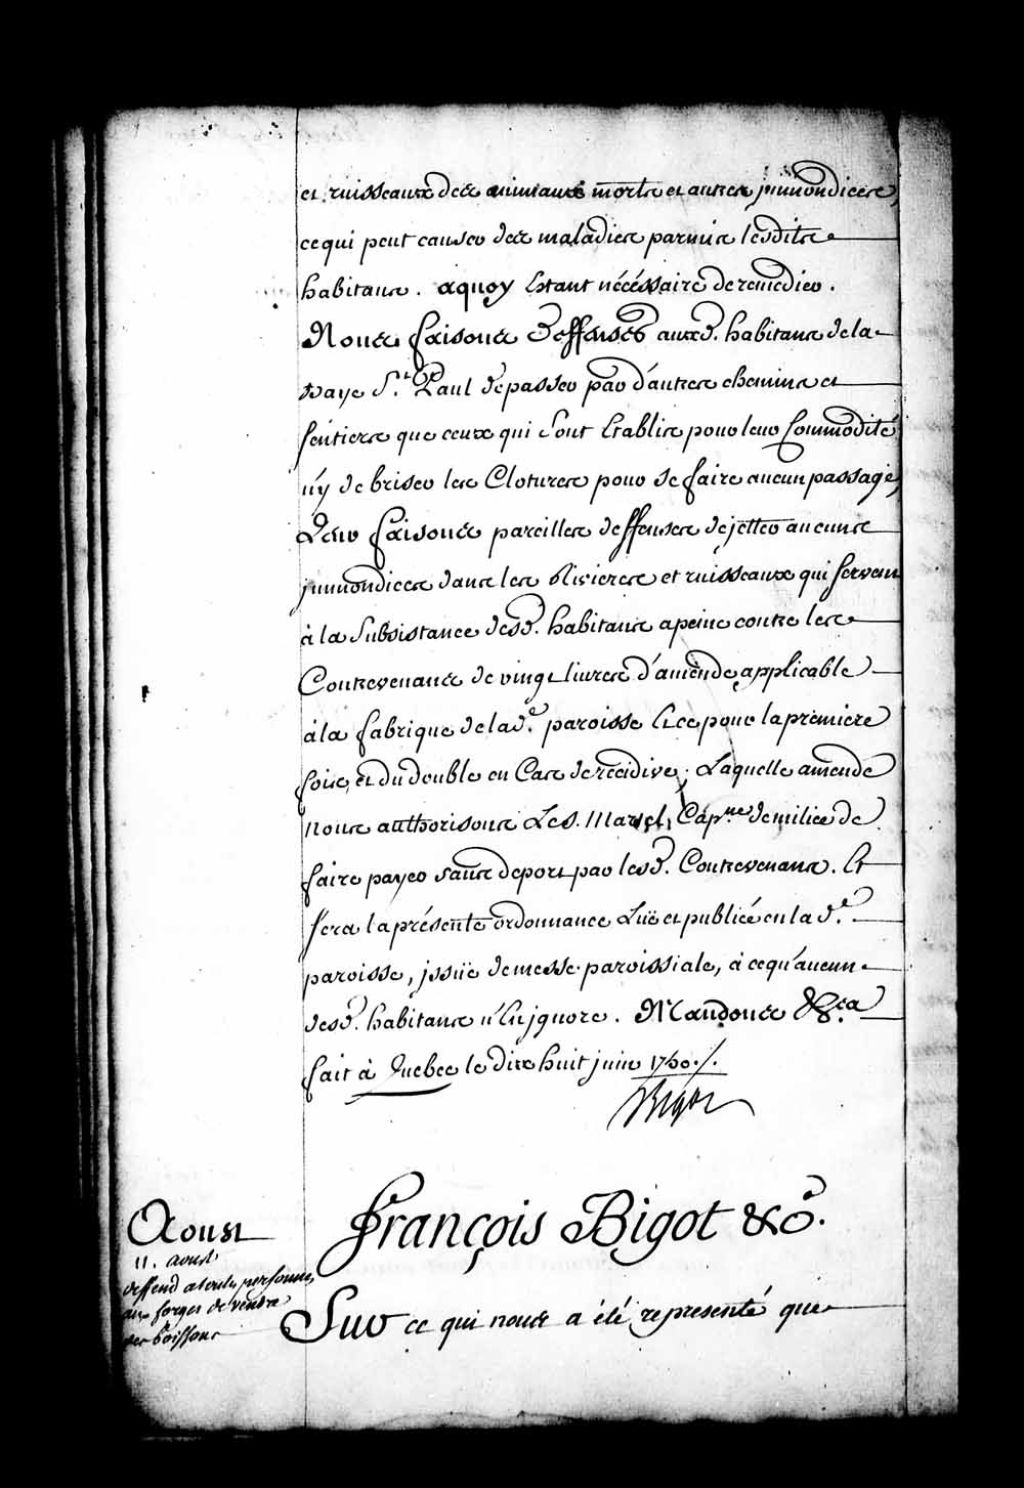 et ruisseaux des animaux morts et autres jmmondices,
ce qui peut causer des maladies parmis lesdits
habitans. aquoy Etant nécéssaire de remedier.
Nous faisons deffenses auxd. habitans de la
Baye St. Paul de passer par d'autres chemins et
sentiers que ceux qui sont Etablis pour leur Commodité
n'y de briser les Clotures pour se faire aucun passage,
Leur faisons pareilles deffenses de jetter aucunes
jmmondices dans les Rivieres et ruisseaux qui servent
à la Subsistance desd. habitans a peine contre les
Contrevenans de vingt livres d'amende applicable
à la fabrique de lad.e paroisse Et ce pour la premiere
fois, et du double en Cas de recidive; Laquelle amende
nous authorisons Le S. Cap.ne de milice de
faire payer sans deport par lesd. Contrevenans. Et
sera la présente ordonnance Luë et publiée en la d.e
paroisse, jssüe de messe paroissiale, à ce qu'aucun
desd. habitans n'En jgnore. Mandons &c.a
fait à Quebec le dix huit juin 1750./.
Bigot
Aoust
11. aoust
deffend a toutes personnes
aux forges de vendre
des boissons
François Bigot &c.
Sur ce qui nous a été representé que